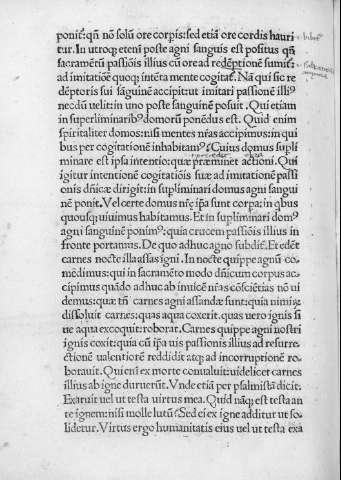 ponit̃: qñ nõ solũ ore corpis: sed etiã ore cordis hauri
tur. In utroq; etenĩ poste agni sanguis est positus qñ
sacramẽtũ passiõis illius cũ ore ad redẽptionẽ sumit̃:
ad imitatiõẽ quoq; intẽta mente cogitat̃. Nã qui sic re
dẽptoris sui sãguinẽ accipit: ut imitari passionẽ illi⁹
necdũ uelit: in uno poste sanguinẽ posuit. Qui etiam
in superliminarib⁹ domorũ ponẽdus est. Quid enim
spiritaliter domos: nisi mentes nr̃as accipimus: in qui
bus per cogitationẽ inhabitam⁹? Cuius domus supli
minare est ipsa intentio: quæ præminet actioni. Qui
igitur intentionẽ cogitatiõis suæ ad imitatiõẽ passi
onis dñicæ dirigit: in supliminari domus agni sangui
nẽ ponit. Vel certe domus nr̃e ip̃a sunt corpa: in q̃bus
quousq; uiuimus habitamus. Et in supliminari dom⁹
agni sanguinẽ ponim⁹: quia crucem passiõis illius in
fronte portamus. De quo adhuc agno subdit̃. Et edẽt
carnes nocte illa assas igni. In nocte quippe agnũ co
mẽdimus: qui in sacramẽto modo dñicum corpus ac
cipimus quãdo adhuc ab inuicẽ nr̃as cõsciẽtias nõ ui
demus: quæ tñ carnes agni assandæ sunt: quia nimi⁊
dissoluit carnes: quas aqua coxerit. quas uero ignis si
ue aqua excoquit: roborat. Carnes quippe agni nostri
ignis coxit: quia cũ ip̃a uis passionis illius ad resurre
ctionẽ ualentiorẽ reddidit atq; ad incorruptionẽ ro
borauit. Qui enĩ ex morte conualuit: uidelicet carnes
illius ab igne duruerũt. Vnde etiã per psalmistã dicit.
Exaruit uel ut testa uirtus mea. Quid nãq; est testa an
te ignem: nisi molle lutũ? Sed ei ex igne additur ut so
lidetur. Virtus ergo humanitatis eius uel ut testa exa